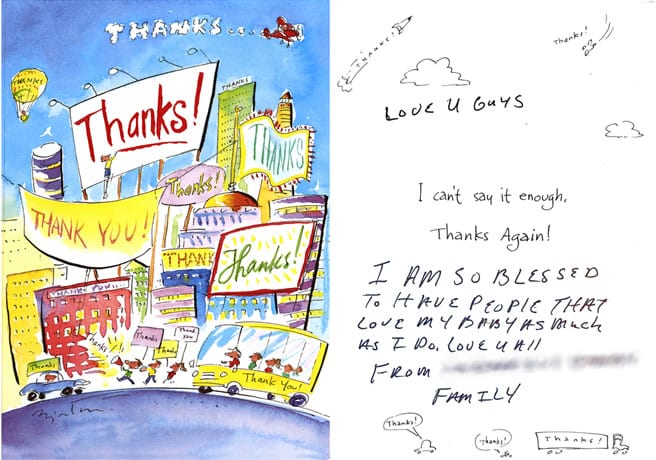 THANKS...
THANKS
Thanks!
THANKS
THANKS
Thanks!
THANK YOU!!
THANK
Thanks!
THANKS YOU...
Thanks!!
Thanks
Thanks
Thank you
Thanks
Thank You!
THANKS!
Thanks!
LOVE U GUYS
I can't say it enough,
Thanks Again!
I AM SO BLESSED
TO HAVE PEOPLE THAT
LOVE MY BABY AS MUCH
AS I DO. LOVE U All
FROM
FAMILY
Thanks!
Thanks!
Thanks!